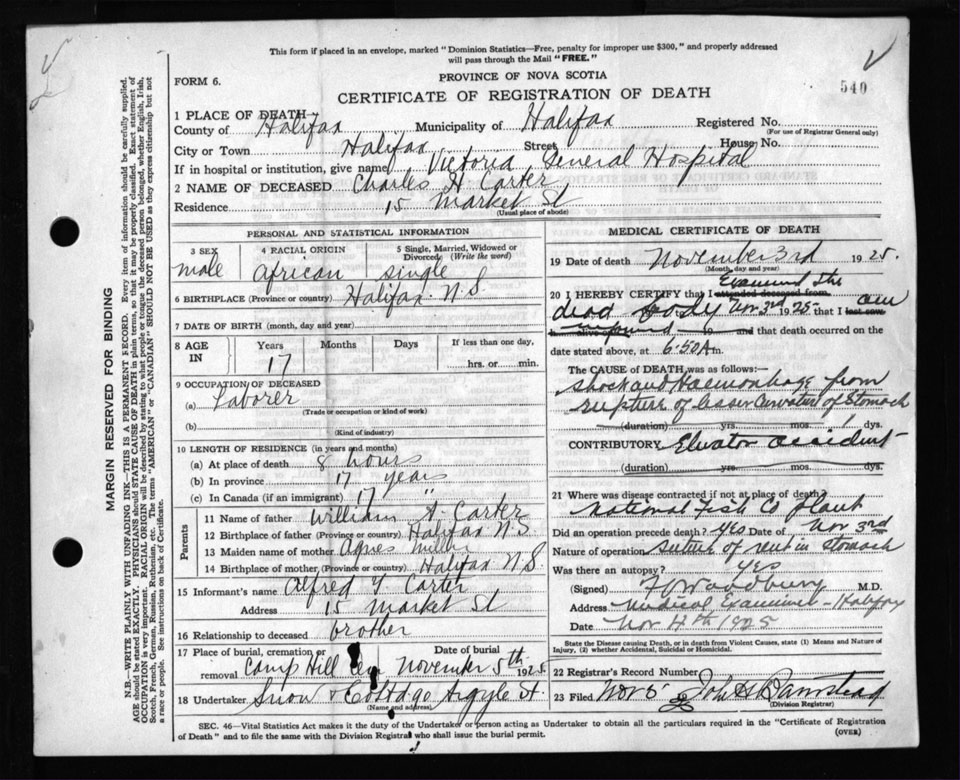 This form if placed in an envelope, marked "Dominion Statistics—Free, penalty for improper use $300," and properly addressed
will pass through the Mail "FREE."
FORM 6.
PROVINCE OF NOVA SCOTIA
540
CERTIFICATE OF REGISTRATION OF DEATH
1 PLACE OF DEATH—
County of Halifax Municipality of Halifax Registered No.
(For use of Registrar General only)
City or Town Halifax Street House No.
If in hospital or institution, give name Victoria General Hospital
2 NAME OF DECEASED Charles H Carter
Residence 15 Market St
(Usual place of abode)
PERSONAL AND STATISTICAL INFORMATION
3 SEX 4 RACIAL ORIGIN 5 Single, Married, Widowed or
Divorced (Write the word)
male African single
6 BIRTHPLACE (Province or country) Halifax N.S.
7 DATE OF BIRTH (month, day and year)
8 AGE IN Years Months Days If less than one day,
17 hrs. or min.
9 OCCUPATION OF DECEASED
(a) Laborer
(Trade or occupation or kind of work)
(b)
(Kind of industry)
10 LENGTH OF RESIDENCE (in years and months)
(a) At place of death 8 hours
(b) In province 17 years
(c) In Canada (if an immigrant) 17 "
Parents
11 Name of father William H. Carter
12 Birthplace of father (Province or country) Halifax N.S.
13 Maiden name of mother Agnes Miller
14 Birthplace of mother (Province or country) Halifax N.S.
15 Informant's name Alfred Y Carter
Address 15 Market St
16 Relationship to deceased brother
17 Place of burial, cremation or removal Date of burial
Camp Hill Cem November 5th 1925
18 Undertaker Snow & Co Argyle St.
(Name and address)
MEDICAL CERTIFICATE OF DEATH
19 Date of death November 3rd 1925.
(Month, day and year)
Examined the
20 I HEREBY CERTIFY that I attended deceased from
dead body Nov 3rd 1925 that I last saw
h alive on 19 and that death occurred on the
date stated above, at 6.50 A m.
The CAUSE OF DEATH was as follows:—
Shock and Haemorrhage from
rupture of lesser Curvature of Stomach
(duration) yrs. mos. 1 dys.
CONTRIBUTORY Elvator accident
(duration) yrs. mos. dys.
21 Where was disease contracted if not at place of death?
National Fish Co plant
Did an operation precede death? Yes Date of Nov 3rd
Nature of operation suture of rent in stomach
Was there an autopsy? Yes
(Signed) Woodbury M.D.
Address Medical Examiner - Halifax
Date Nov 1925
State the Disease causing Death, or in death from Violent Causes, state (1) Means and Nature of
Injury, (2) whether Accidental, Suicidal or Homicidal.
22 Registrar's Record Number
23 Filed Nov 5 John H Barnstead
(Division Registrar)
SEC. 46—Vital Statistics Act makes it the duty of the Undertaker or person acting as Undertaker to obtain all the particulars required in the "Certificate of Registration
of Death" and to file the same with the Division Registrar who shall issue the burial permit.
(OVER)
MARGIN RESERVED FOR BINDING
N.B.—WRITE PLAINLY WITH UNFADING INK—THIS IS A PERMANENT RECORD. Every item of information should be carefully supplied.
AGE should be stated EXACTLY. PHYSICIANS should STATE CAUSE OF DEATH in plain terms, so that it may be properly classified. Exact statement of
OCCUPATION is very important. RACIAL ORIGIN will be described by stating to what people or tongue the deceased person belonged, whether English, Irish,
Scotch, French, German, Russian, Ruthenian, etc. The terms "AMERICAN" or "CANADIAN" SHOULD NOT BE USED as they express citizenship but not
a race or people. See instructions on back of Certificate.